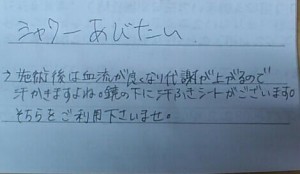 シャワーあびたい
→施術後は血流が良くなり代謝が上がるので
汗かきますよね。鏡の下に汗ふきシートがございます。
そちらをご利用下さいませ。